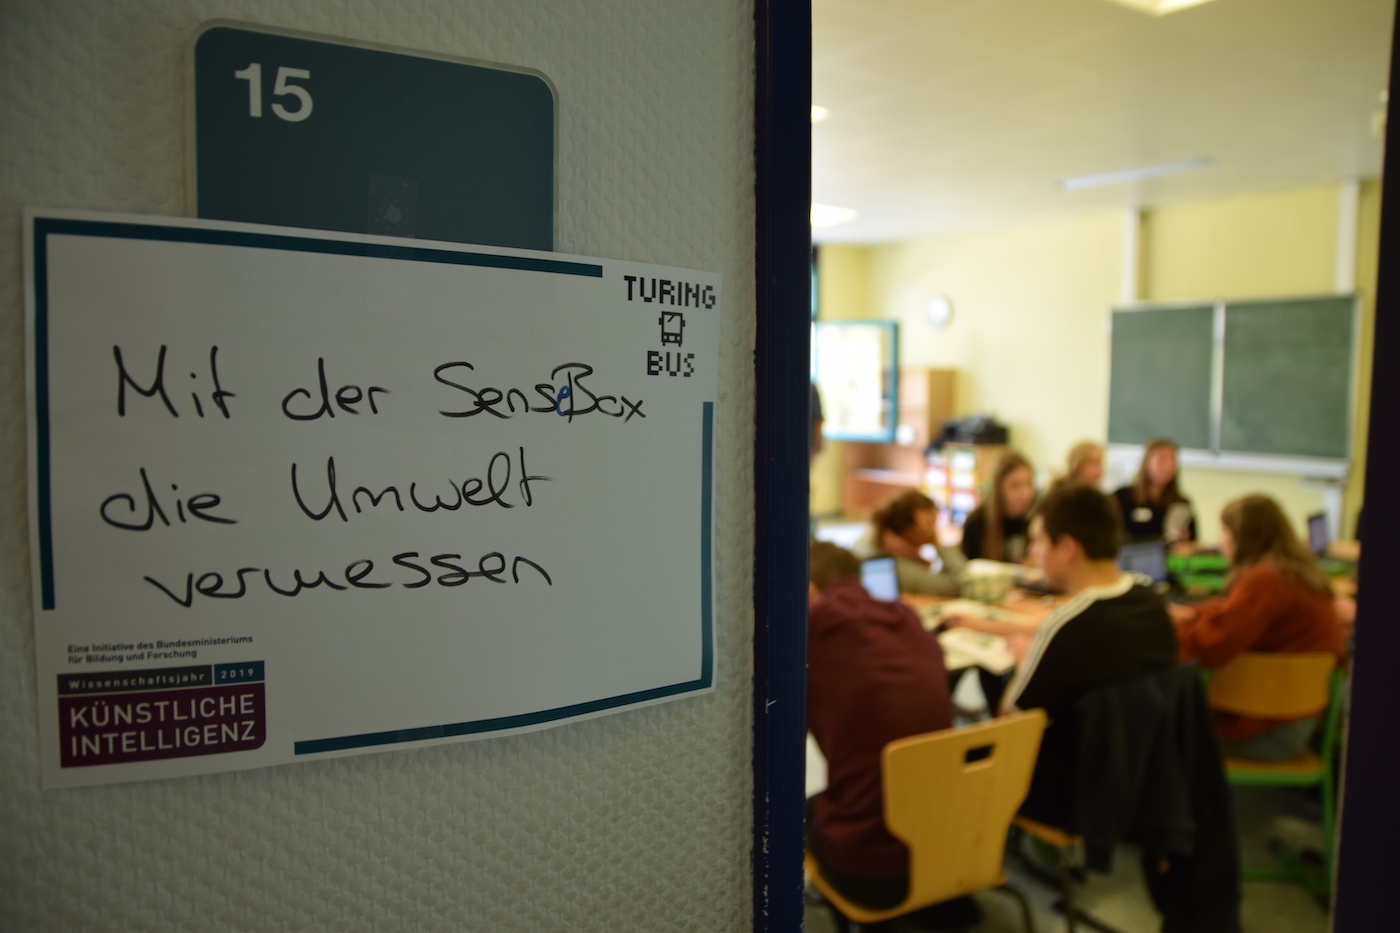 15
TURING
BUS
Mit der SenseBox
die Umwelt
vermessen
Eine Initiative des Bundesministeriums
für Bildung und Forschung
Wissenschaftsjahr 2019
KÜNSTLICHE
INTELLIGENZ